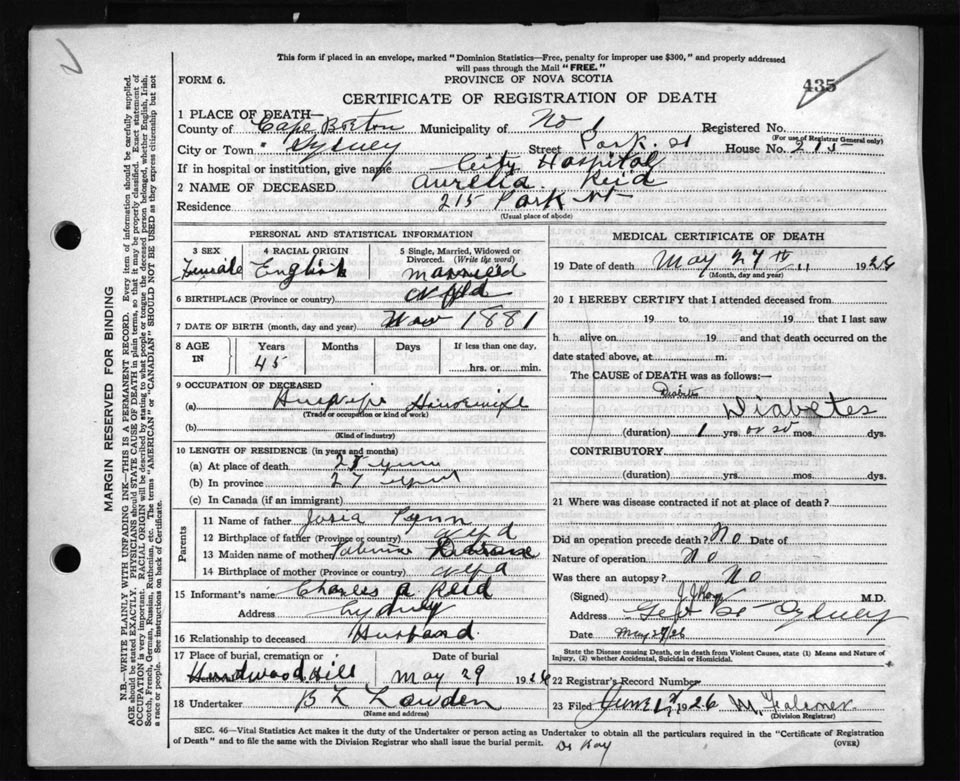 This form if placed in an envelope, marked "Dominion Statistics—Free, penalty for improper use $300," and properly addressed
will pass through the Mail "FREE."
FORM 6.
PROVINCE OF NOVA SCOTIA
435
CERTIFICATE OF REGISTRATION OF DEATH
1 PLACE OF DEATH—
County of Cape Breton Municipality of No 1 Registered No.
(For use of Registrar General only)
City or Town Sydney Street Park St House No. 215
If in hospital or institution, give name City Hospital
2 NAME OF DECEASED Aurelia Reid
Residence 215 Park St
(Usual place of abode)
PERSONAL AND STATISTICAL INFORMATION
3 SEX 4 RACIAL ORIGIN 5 Single, Married, Widowed or Divorced. (Write the word)
Female English married
6 BIRTHPLACE (Province or country) Nfld
7 DATE OF BIRTH (month, day and year) Nov 1881
8 AGE IN Years Months Days If less than one day,
45 hrs. or min.
9 OCCUPATION OF DECEASED
(a) Housewife Housewife
(Trade or occupation or kind of work)
(b)
(Kind of industry)
10 LENGTH OF RESIDENCE (in years and months)
(a) At place of death years
(b) In province 27 years
(c) In Canada (if an immigrant)
Parents
11 Name of father Josia Pynn
12 Birthplace of father (Province or country) Nfld
13 Maiden name of mother
14 Birthplace of mother (Province or country) Nfld
15 Informant's name Charles A Reid
Address Sydney
16 Relationship to deceased Husband
17 Place of burial, cremation or Date of burial
Hardwood Hill May 29 1926
18 Undertaker B L Lowden
(Name and address)
MEDICAL CERTIFICATE OF DEATH
19 Date of death May 27th 1926
(Month, day and year)
20 I HEREBY CERTIFY that I attended deceased from
19 to 19 that I last saw
h alive on 19 and that death occurred on the
date stated above, at m.
The CAUSE of DEATH was as follows:—
Diabetes
Diabetes
(duration) 1 yrs. or so mos. dys.
CONTRIBUTORY
(duration) yrs. mos. dys.
21 Where was disease contracted if not at place of death?
Did an operation precede death? No Date of
Nature of operation No
Was there an autopsy? No
(Signed) M.D.
Address Sydney
Date May 29/26
State the Disease causing Death, or in death from Violent Causes, state (1) Means and Nature of
Injury, (2) whether Accidental, Suicidal or Homicidal.
22 Registrar's Record Number
23 Filed June 1926
(Division Registrar)
SEC. 46—Vital Statistics Act makes it the duty of the Undertaker or person acting as Undertaker to obtain all the particulars required in the "Certificate of Registration
of Death" and to file the same with the Division Registrar who shall issue the burial permit. Dr Kay
(OVER)
MARGIN RESERVED FOR BINDING
N.B.—WRITE PLAINLY WITH UNFADING INK—THIS IS A PERMANENT RECORD. Every item of information should be carefully supplied.
AGE should be stated EXACTLY. PHYSICIANS should STATE CAUSE OF DEATH in plain terms, so that it may be properly classified. Exact statement of
OCCUPATION is very important. RACIAL ORIGIN will be described by stating to what people or tongue the deceased person belonged, whether English, Irish,
Scotch, French, German, Russian, Ruthenian, etc. The terms "AMERICAN" or "CANADIAN" SHOULD NOT BE USED as they express citizenship but not
a race or people. See instructions on back of Certificate.